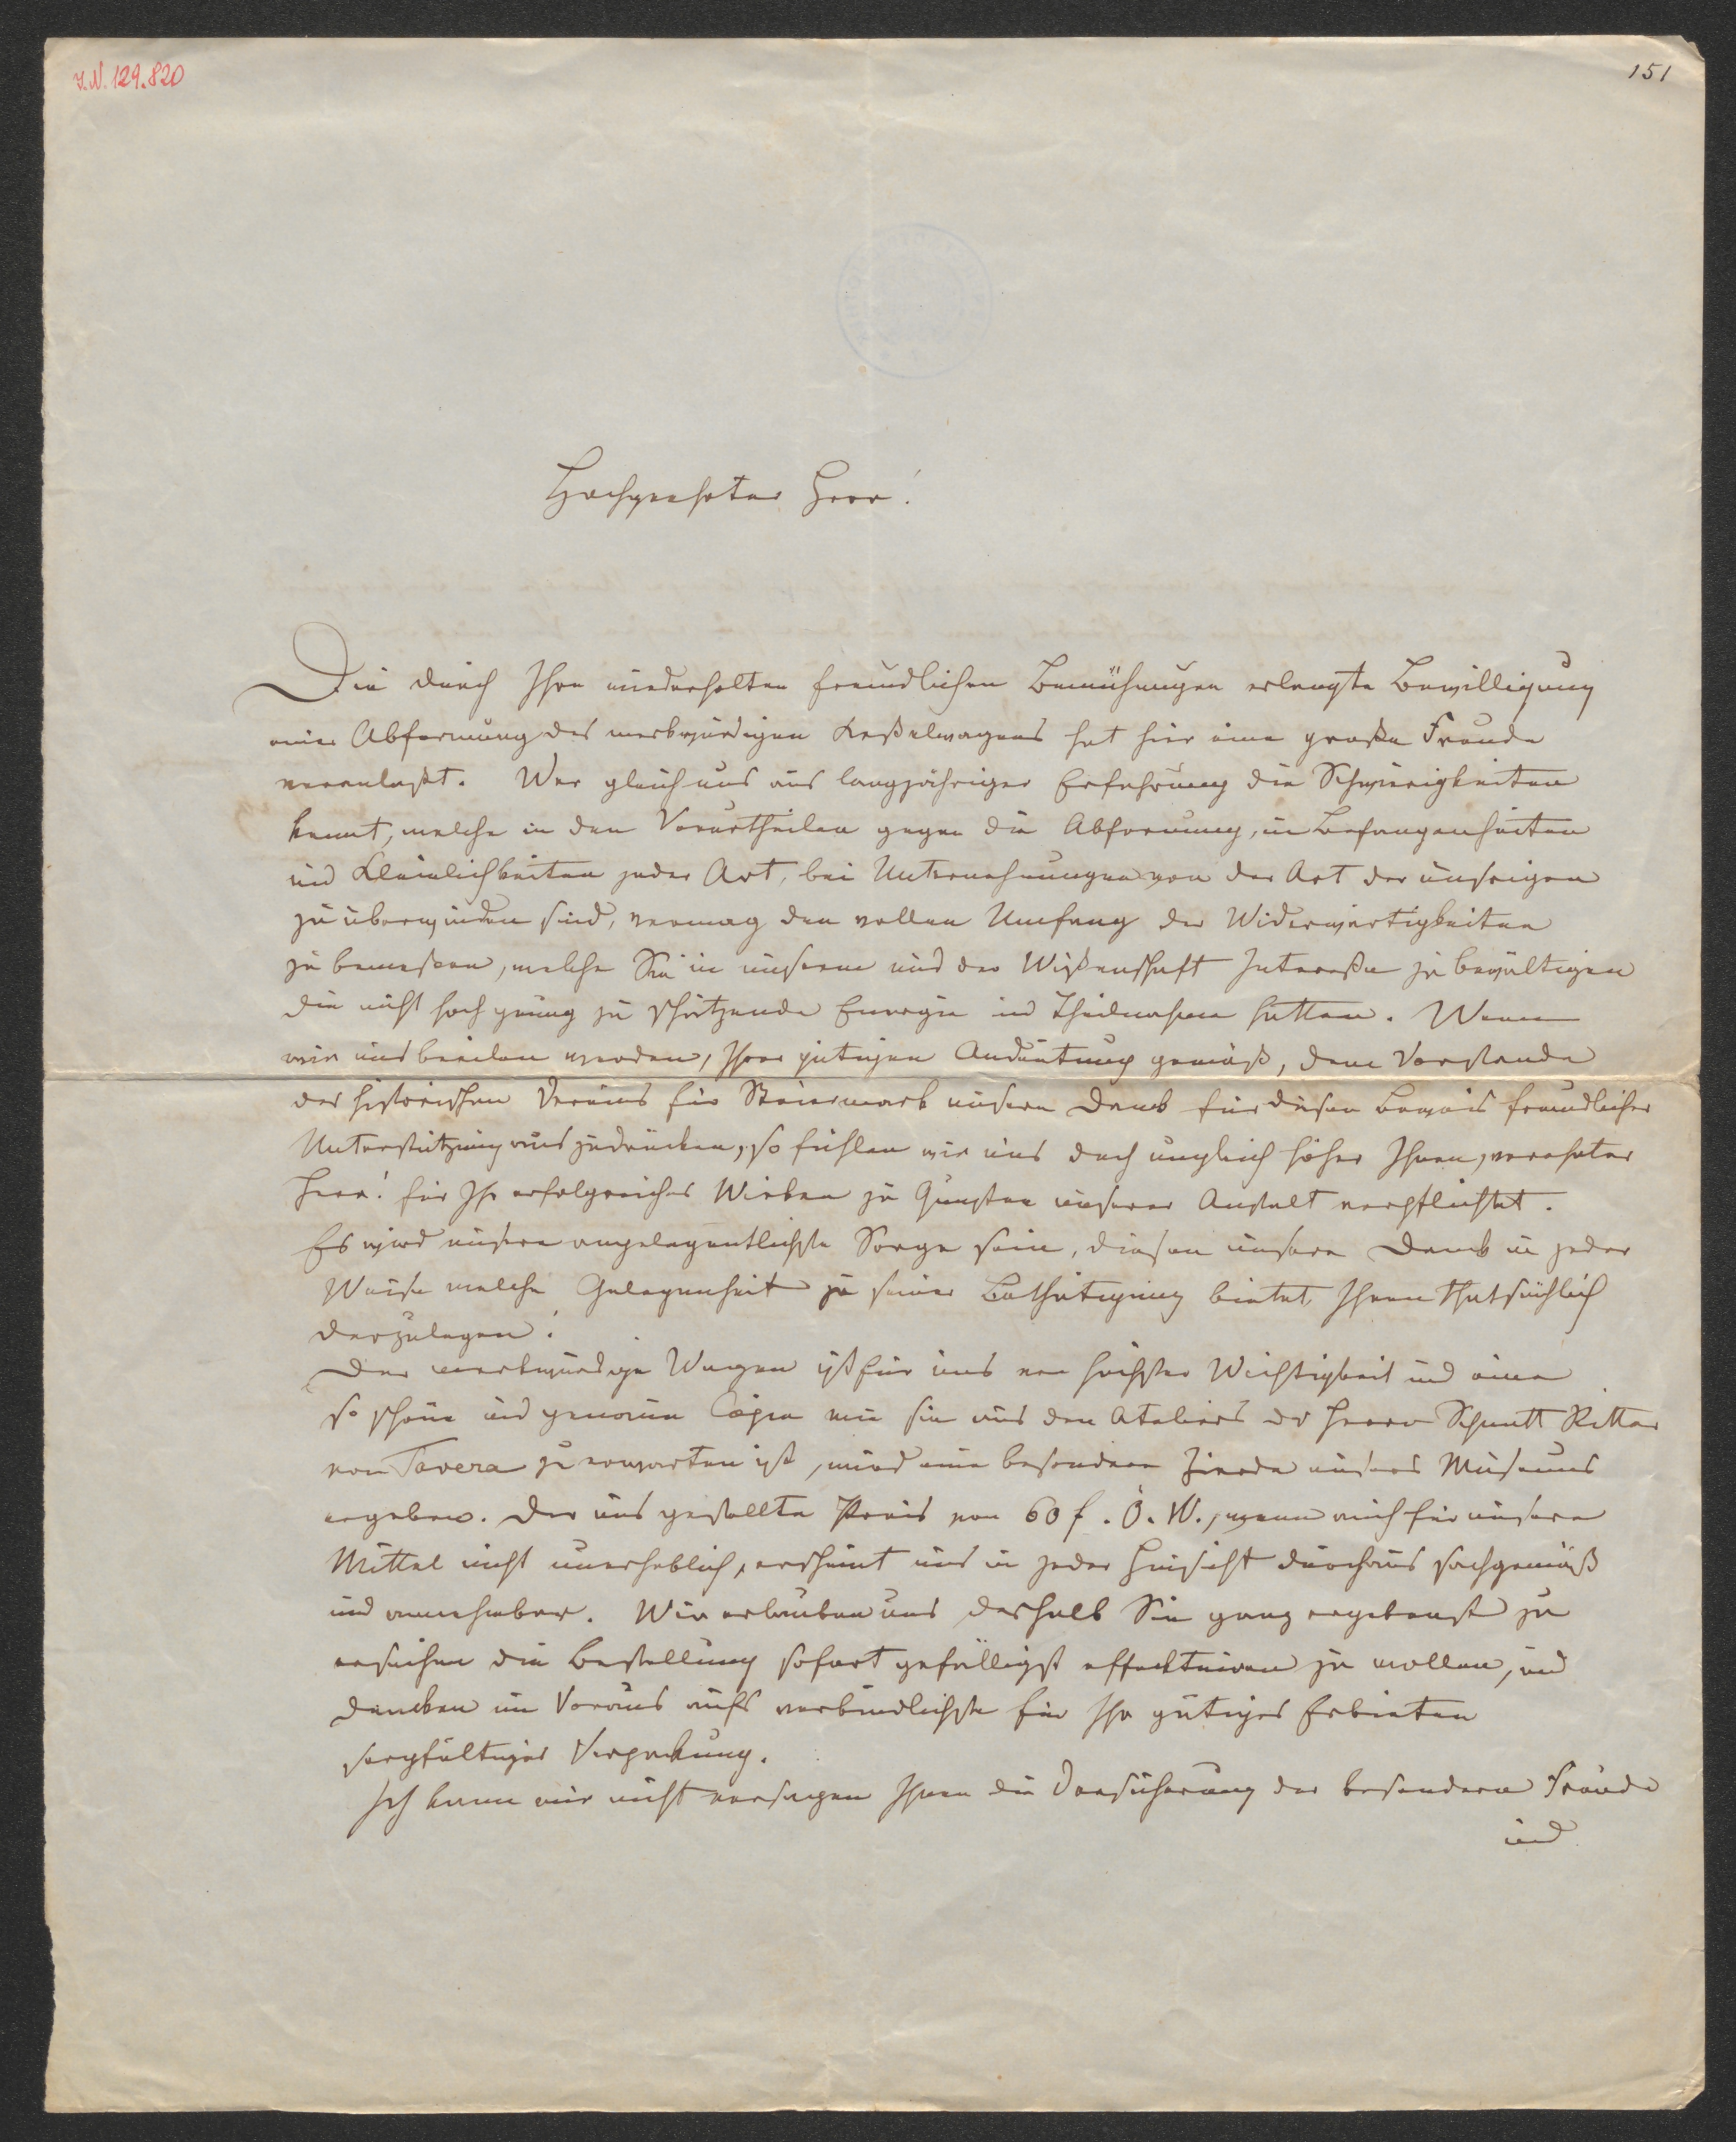 I.N. 129.820
151
Hochgeehrter Herr!
Die durch Ihre wiederholten freundlichen Bemühungen erlangte Bewilligung
einer Abformung des merkwürdigen Keßelwagens hat hier eine große Freude
veranlaßt. Wer gleich uns aus langjähriger Erfahrung die Schwierigkeiten
kennt, welche in den Vorurtheilen gegen die Abformung, in Befangenheiten
und Kleinlichkeiten jeder Art, bei Unternehmungen von der Art der unsrigen
zu überwinden sind, vermag den vollen Umfang der Widerwärtigkeiten
zu bemessen, welche Sie in unserem und der Wißenschaft Intereße zu bewältigen
die nicht hoch genug zu schätzende Energie und Theilnahme hatten. Wenn
wir uns beeilen werden, Ihrer gütigen Andeutung gemäß, dem Vorstande
des historischen Vereins für Steiermark unsern Dank für diesen Beweis freundlicher
Unterstützung auszudrücken, so fühlen wir uns doch ungleich höher Ihnen, verehrter
Herr! für Ihr erfolgreiches Wirken zu Gunsten unserer Anstalt verpflichtet.
Es wird unsere angelegentlichste Sorge sein, diesen unsern Dank in jeder
Weise welche Gelegenheit zu seiner Bethätigung bietet, Ihnen thatsächlich
darzulegen!
Der merkwürdige Wagen ist für uns von höchster Wichtigkeit und eine
so schöne und genaue Copie wie sie aus den Ateliers des Herrn Schmitt Ritter
von Tavera zu erwarten ist, wird eine besondere Zierde unseres Museums
ergeben. Der uns gestellte Preis von 60 f. Ö. W., wenn auch für unsere
Mittel nicht unerheblich, erscheint uns in jeder Hinsicht durchaus sachgemäß
und annehmbar. Wir erlauben uns deshalb Sie ganz ergebenst zu
ersuchen die Bestellung sofort gefälligst effektuiren zu wollen, und
danken im Voraus aufs verbindlichste für Ihr gütiges Erbieten
sorgfältiger Verpackung.
Ich kann mir nicht versagen Ihnen die Versicherung der besondern Freude
und